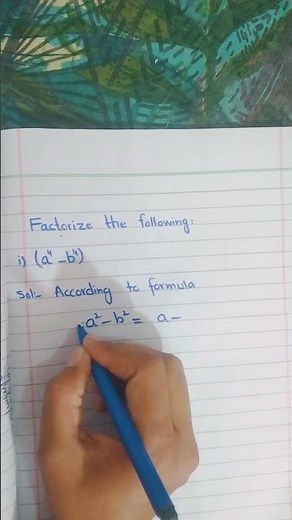 Factorize the following:
i) (a⁴ - b⁴)
Sol:- According to formula
a² - b² = a -